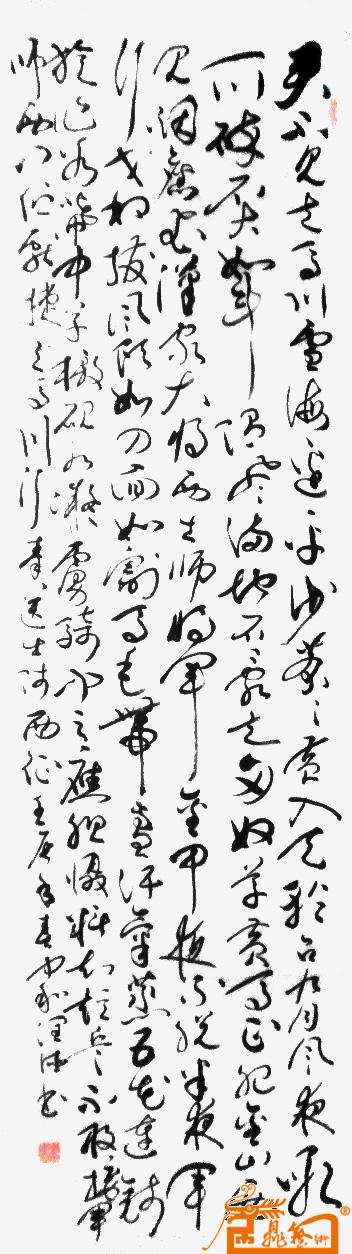 君不见走马川雪海边平沙莽莽黄入天轮台九月风夜吼
一川碎石大如斗随风满地石乱走匈奴草黄马正肥金山西
见烟尘飞汉家大将西出师将军金甲夜不脱半夜军
行戈相拨风头如刀面如割马毛带雪汗气蒸五花连钱
旋作冰幕中草檄砚水凝虏骑闻之应胆慑料知短兵不敢接车
师西门伫献捷走马川行奉送出师西征壬辰年春书